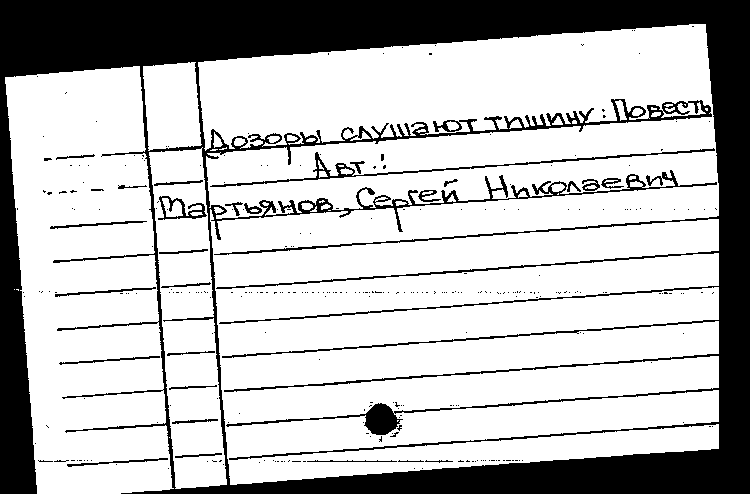 Дозоры слушают тишину: Повесть
Авт.:
Мартьянов, Сергей Николаевич